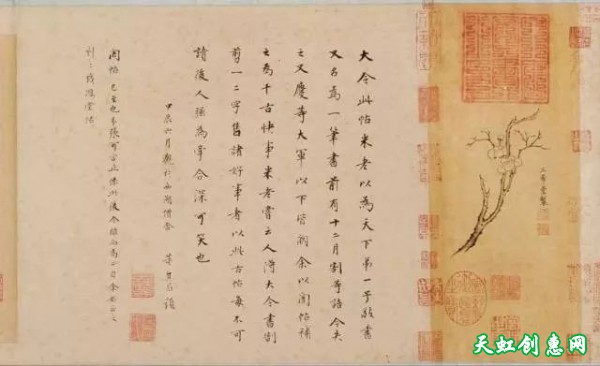 三希堂製
大令此帖米老以為天下第一子敬書
又名為一筆書前有十二月割等語今失
之又慶等大軍以下皆闕余以閣帖補
之為千古快事米老嘗云人得大令書割
剪一二字售諸好事者以此古帖每不可
讀後人強為牽合深可笑也
甲辰六月觀於西湖僧舍 董其昌題
閣帖
戲鴻堂帖
天虹创惠网